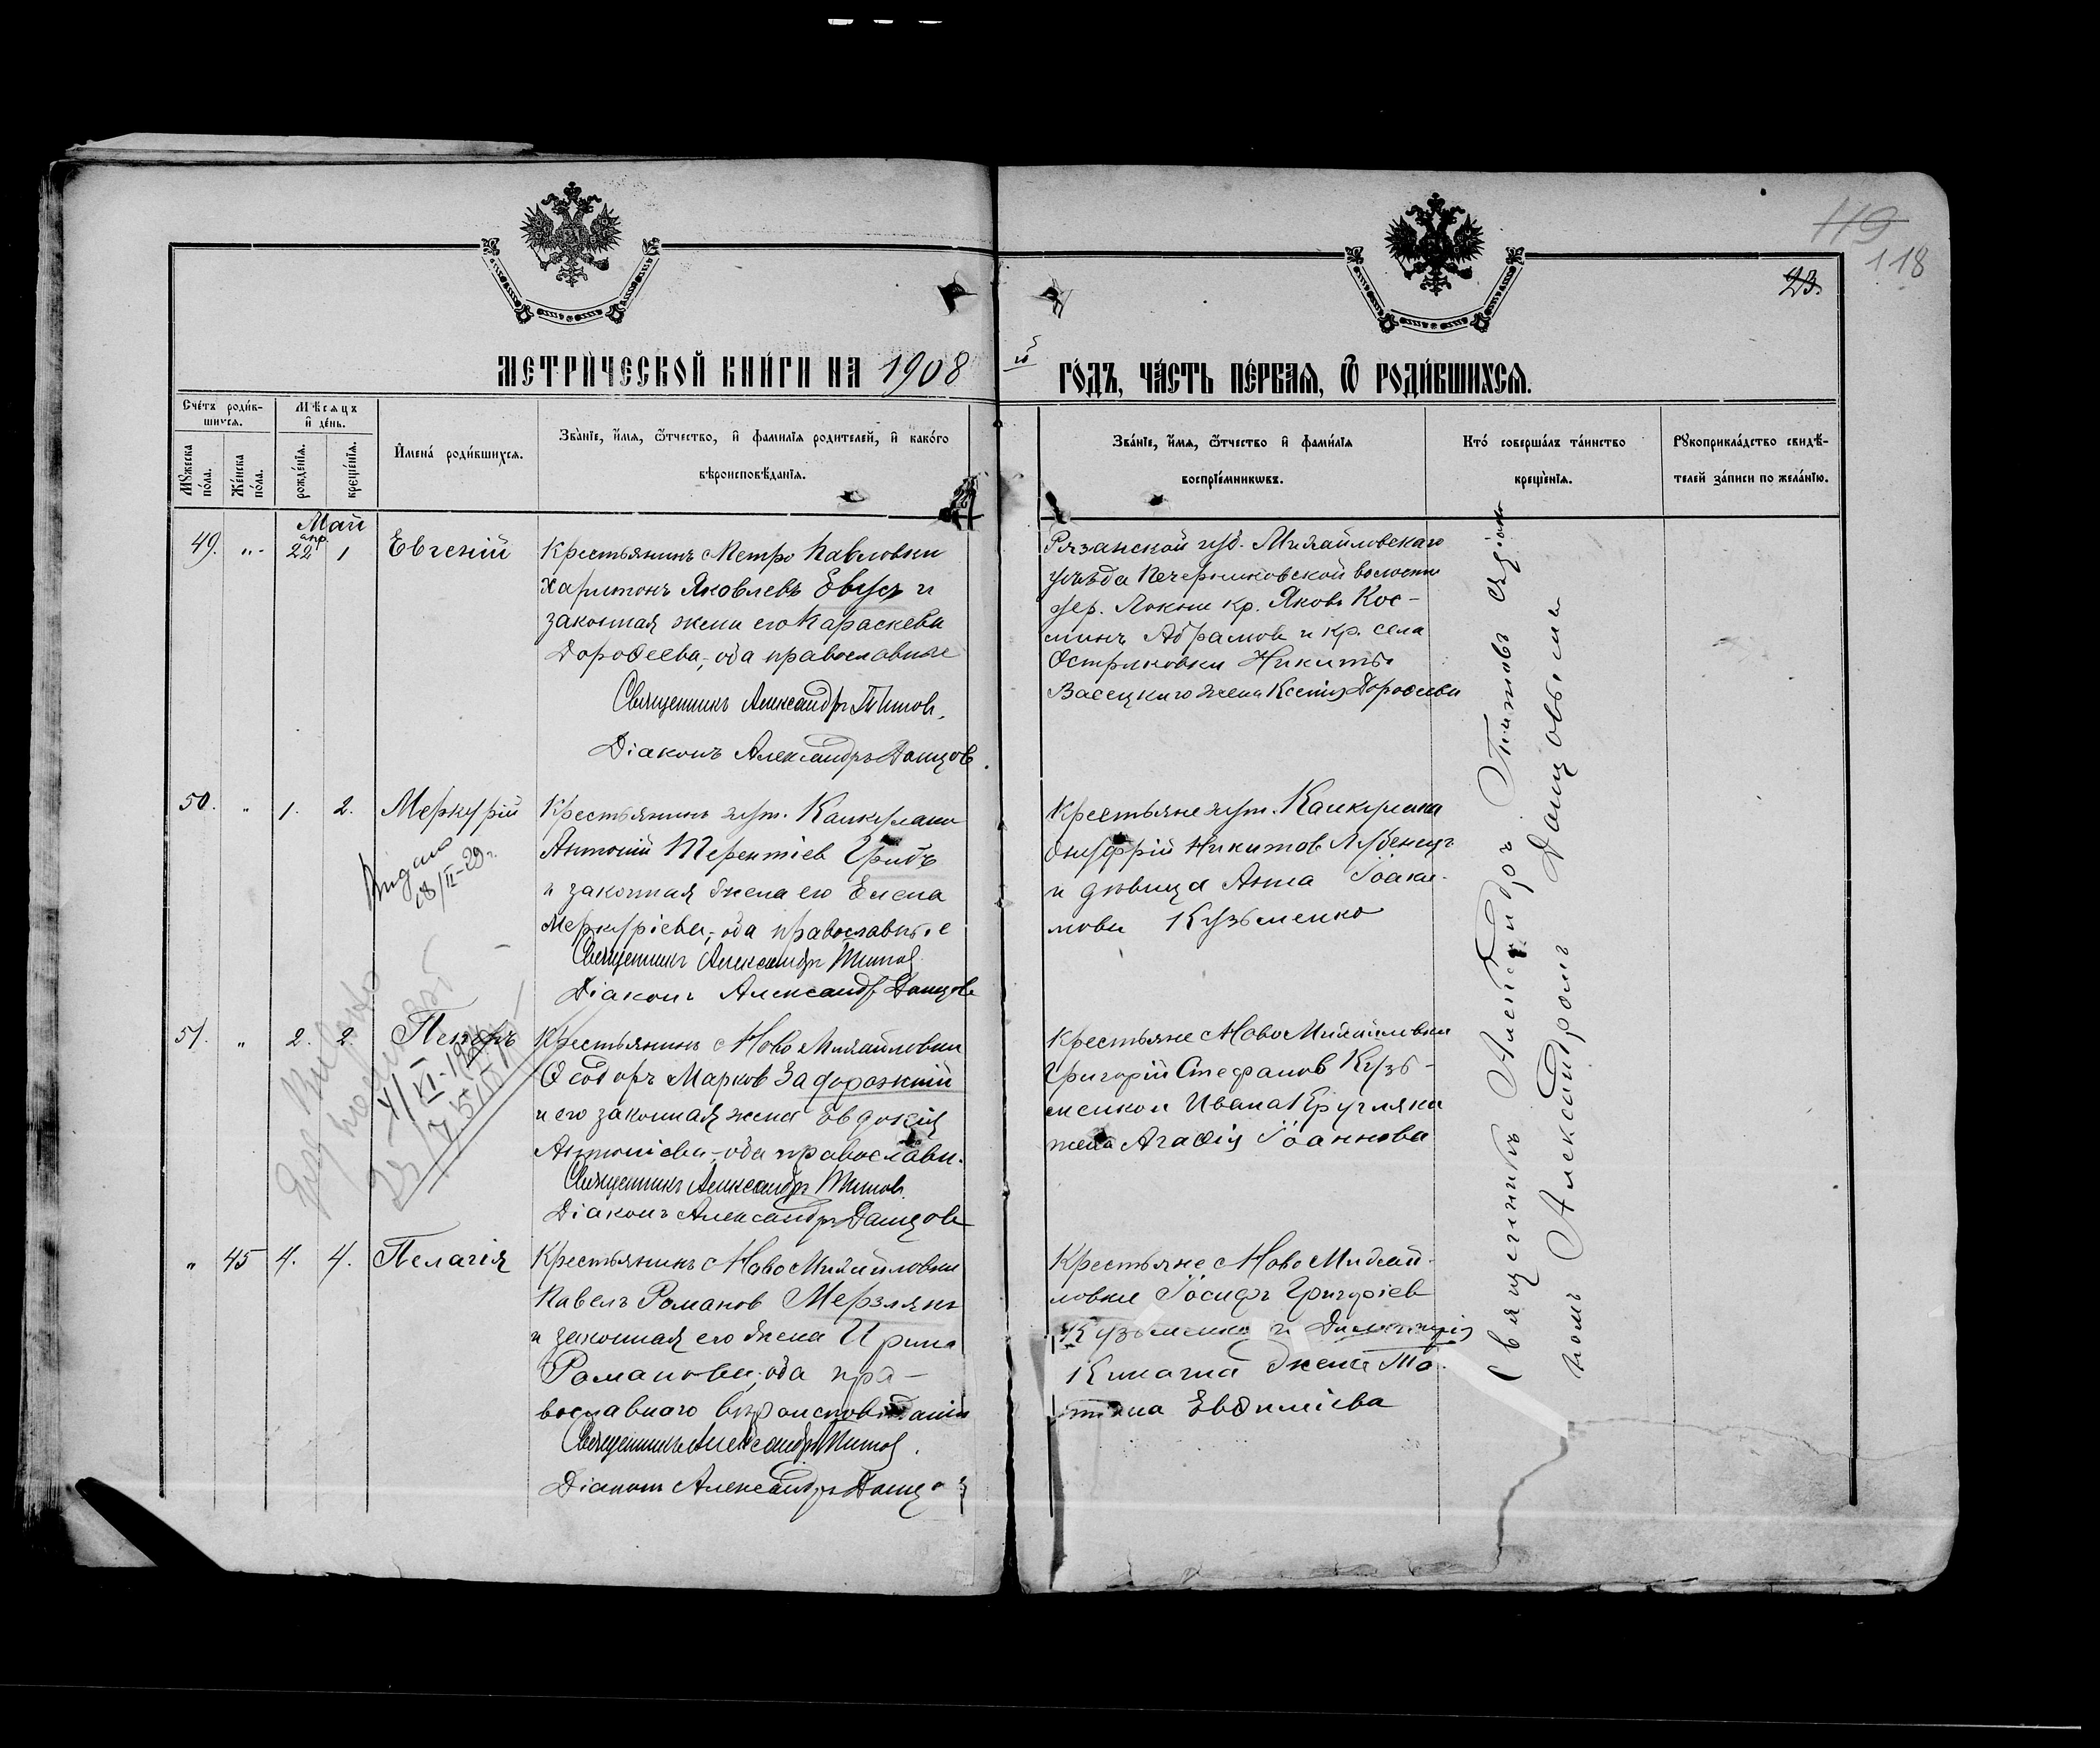 119
118
23.
МЕТРИ́ЧЕСКОЙ КНИ́ГИ НА 1908
го́дъ, ча́сть пе́рвая, ѽ роди́вшихся.
Сче́тъ роди́в-
шихся.
Мꙋ́жеска по́ла.
Же́нска по́ла.
Мѣ́сяцъ
и҆ де́нь.
рожде́нїя.
креще́нїя.
И҆мена̀ роди́вшихся.
Зва́нїе, и҆́мя, ѻ҆́тчество, и҆ фами́лїя роди́телей, и҆ како́го
вѣроисповѣ́данїя.
Зва́нїе, и҆́мя, ѻ҆́тчество и҆ фами́лїя
воспрїе́мникѡвъ.
Кто̀ соверша́лъ та́инство
креще́нїя.
Рꙋкоприкла́дство свидѣ́-
телей за́писи по жела́нїю.
Май
49. " апр. 22 1 Евгеній
Крестьянинъ с Петро Павловки
Харитонъ Яковлевъ Евусъ и
законная жена его Параскева
Дорофеева, оба православные
Священникъ Александръ Титов.
Діаконъ Александръ Данцов.
Рязанской губ. Михайловскаго
уѣзда Печерниковской волости
дер. Локни кр. Яковъ Кос-
минъ Абрамов и кр. села
Остриковки Никиты
Васецкаго жена Ксенія Дорофеева
50. " 1. 2. Меркурій
Крестьянинъ хут. Канкулака
Антоній Терентіев Грибъ
и законная жена его Елена
Меркуріева, оба православные
Священникъ Александръ Титов
Діаконъ Александръ Данцов
Видано
18/II-29 г.
Крестьяне хут. Канкулака
Онуфрій Никитов Лубенецъ
и дѣвица Анна Іоаки-
мова Кузьменко
51. " 2. 2. Петръ
Крестьянинъ с Ново Михайловки
Ѳеодоръ Марков Задорожній
и его законная жена Евдокія
Антоніева, оба православн.
Священникъ Александръ Титов.
Діаконъ Александръ Данцов
Крестьяне с Ново Михайловки
Григорій Стефанов Кузь-
менко и Ивана Кругляка
жена Агафія Іоаннова
" 45 4. 4. Пелагія
Крестьянинъ с Ново Михайловки
Павелъ Романов Мерзлякъ
и законная его жена Ирина
Романова, оба пра-
вославнаго вѣроисповѣданія
Священникъ Александръ Титов.
Діаконъ Александръ Данцов
Крестьяне с Ново Михай-
ловки Іосифъ Григоріев
Кузьменко и Димитрія
жена Та-
тіана Евфиміева
Священникъ Александръ Титовъ съ діако-
номъ Александромъ Данцовымъ